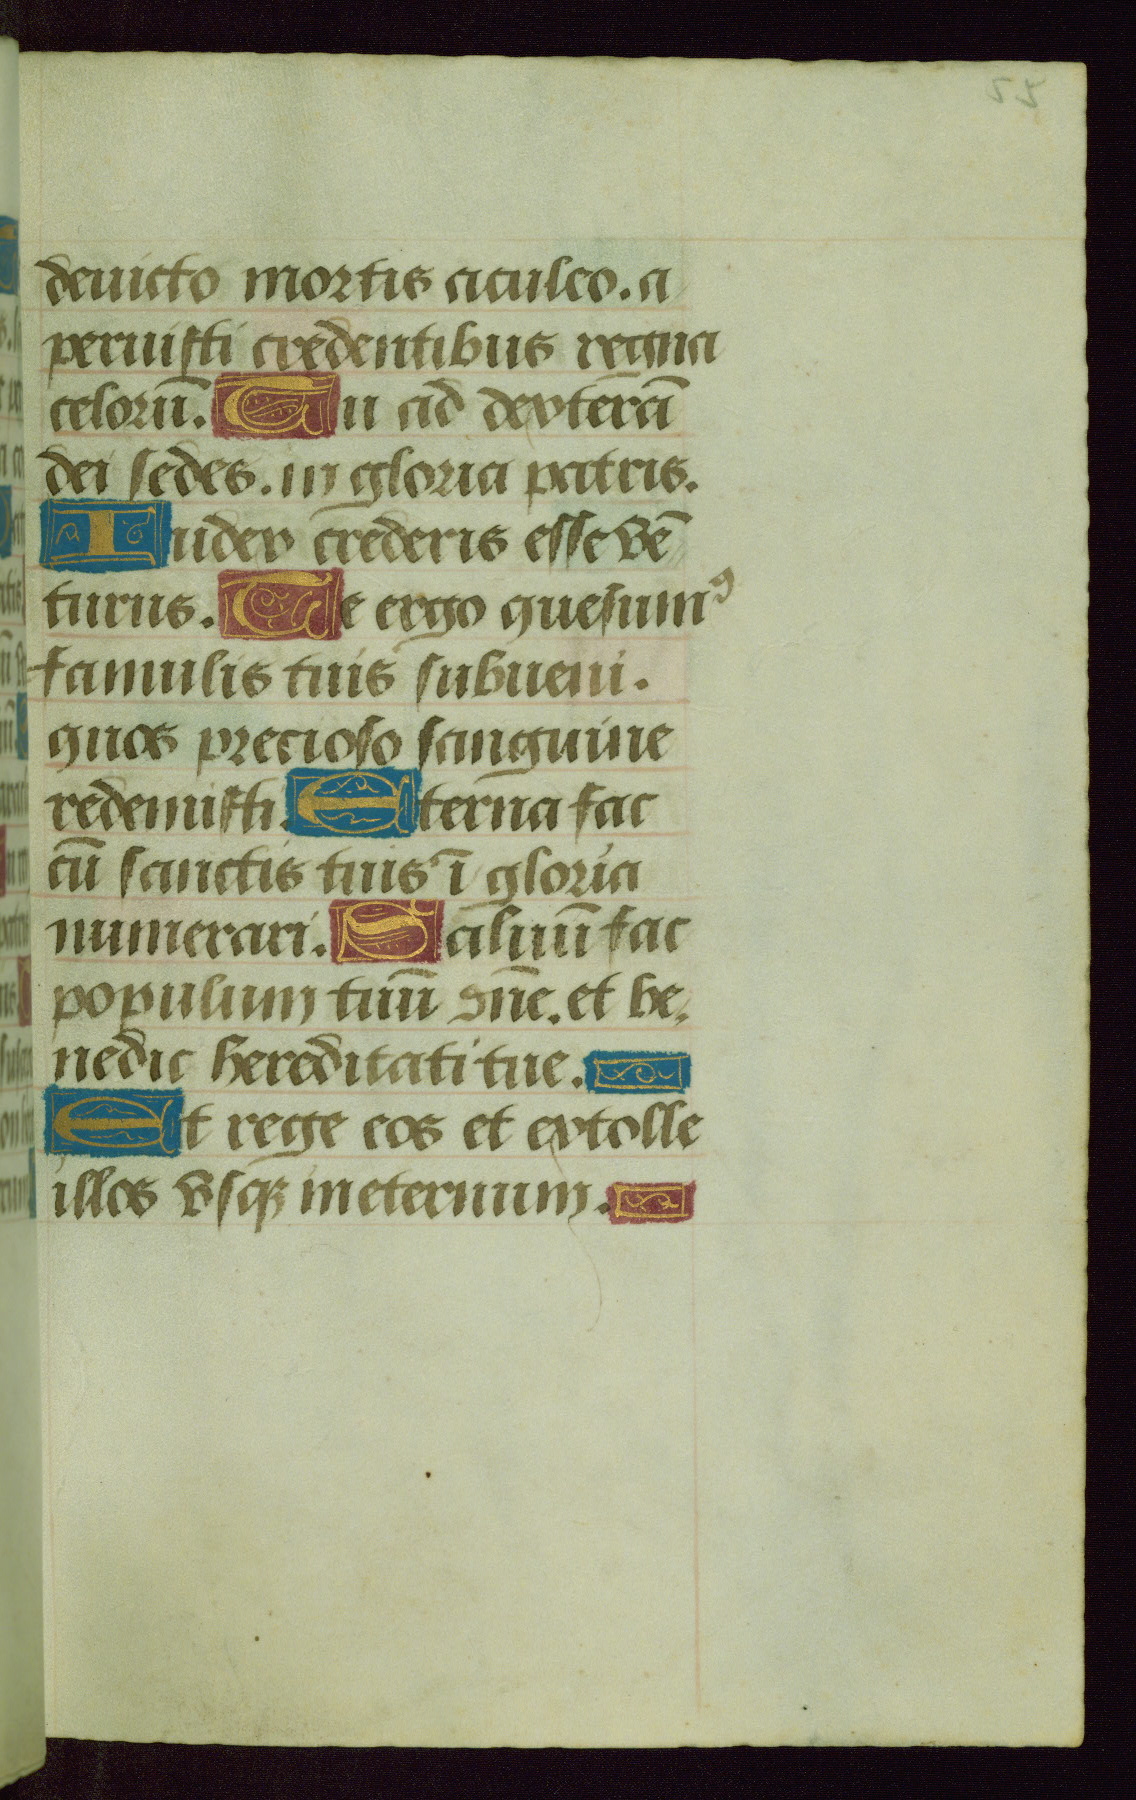 deuicto mortis aculeo. a
peruisti credentibus regna
celorū. Tu ad dexterā
dei sedes. in gloria patris.
Iudex crederis esse vē
turus. Te ergo quesumꝰ
famulis tuis subueni.
quos precioso sanguine
redemisti. Eterna fac
cū sanctis tuis ī gloria
numerari. Saluū fac
populum tuū dn̄e. et be
nedic hereditati tue.
Et rege eos et extolle
illos vsqꝫ in eternum.